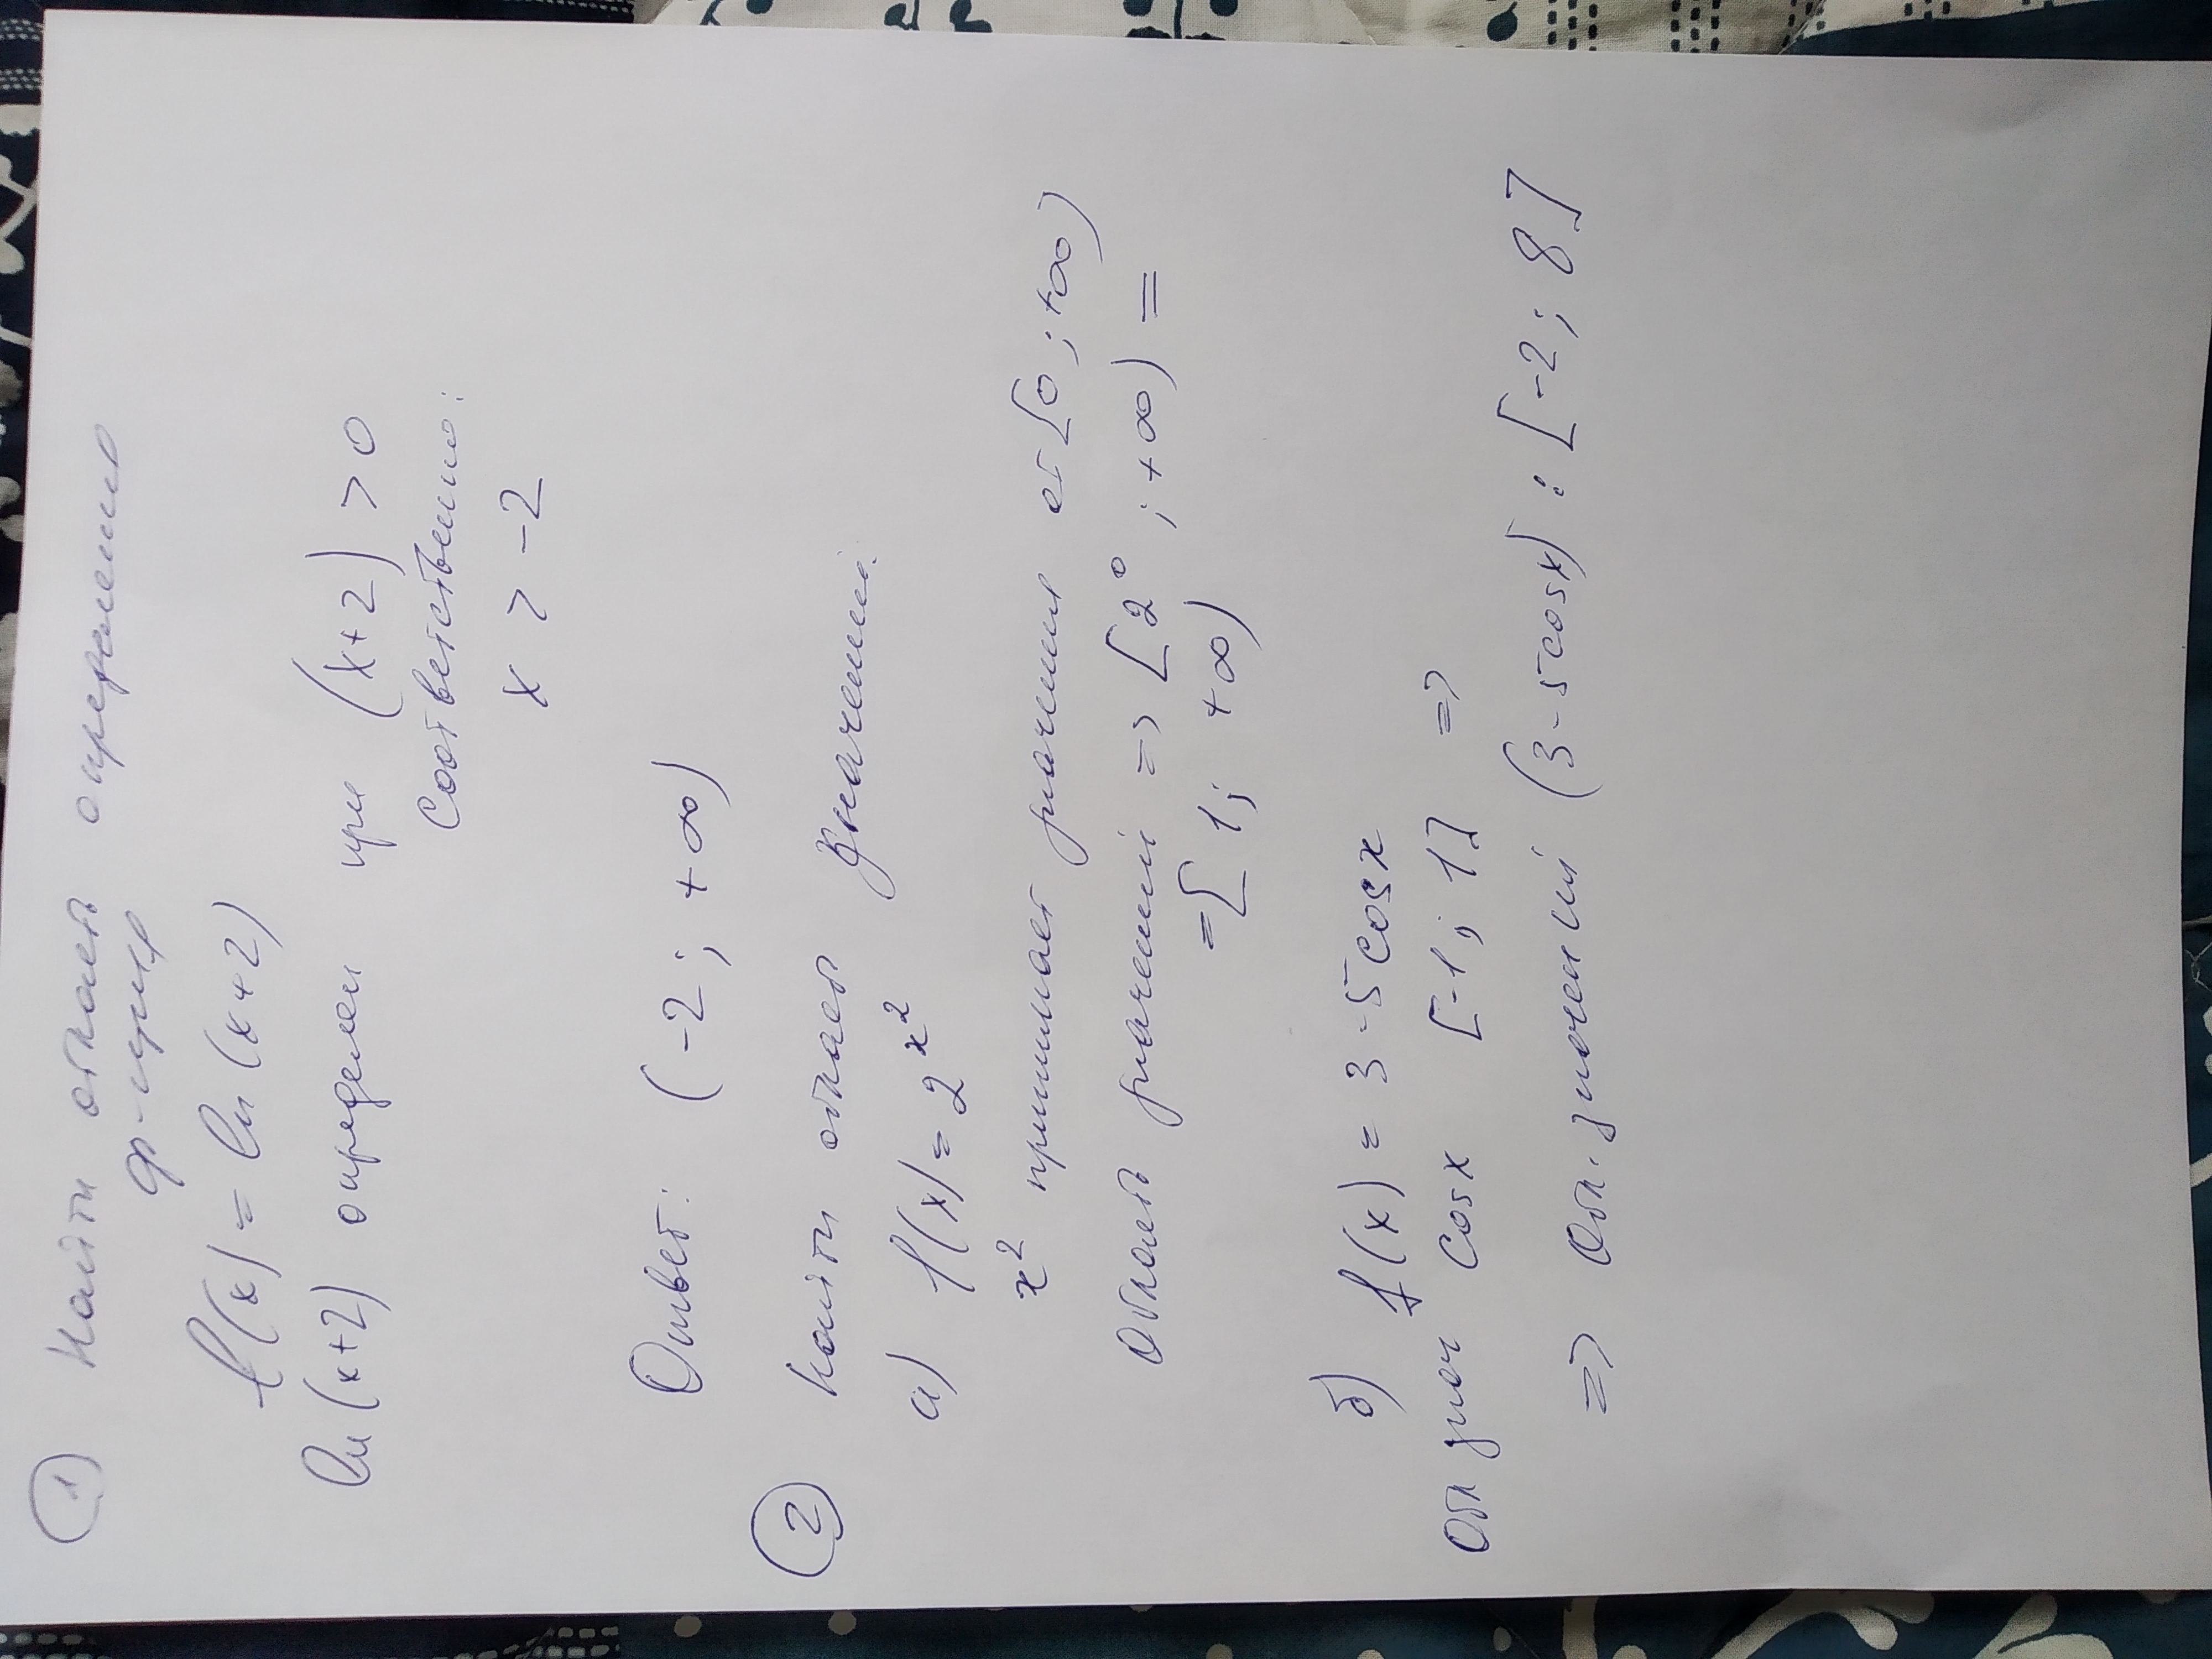 1 Найти область определения
ф-ции
f(x) = ln(x+2)
ln(x+2) определен при (x+2) > 0
Соответственно:
x > -2
Ответ: (-2; +∞)
2 Найти область значений.
а) f(x) = 2^x²
x² принимает значения от [0; +∞)
Область значений => [2⁰; +∞) =
= [1; +∞)
б) f(x) = 3 - 5cosx
Обл знач Cosx [-1; 1] =>
=> Обл. значений (3 - 5cosx): [-2; 8]